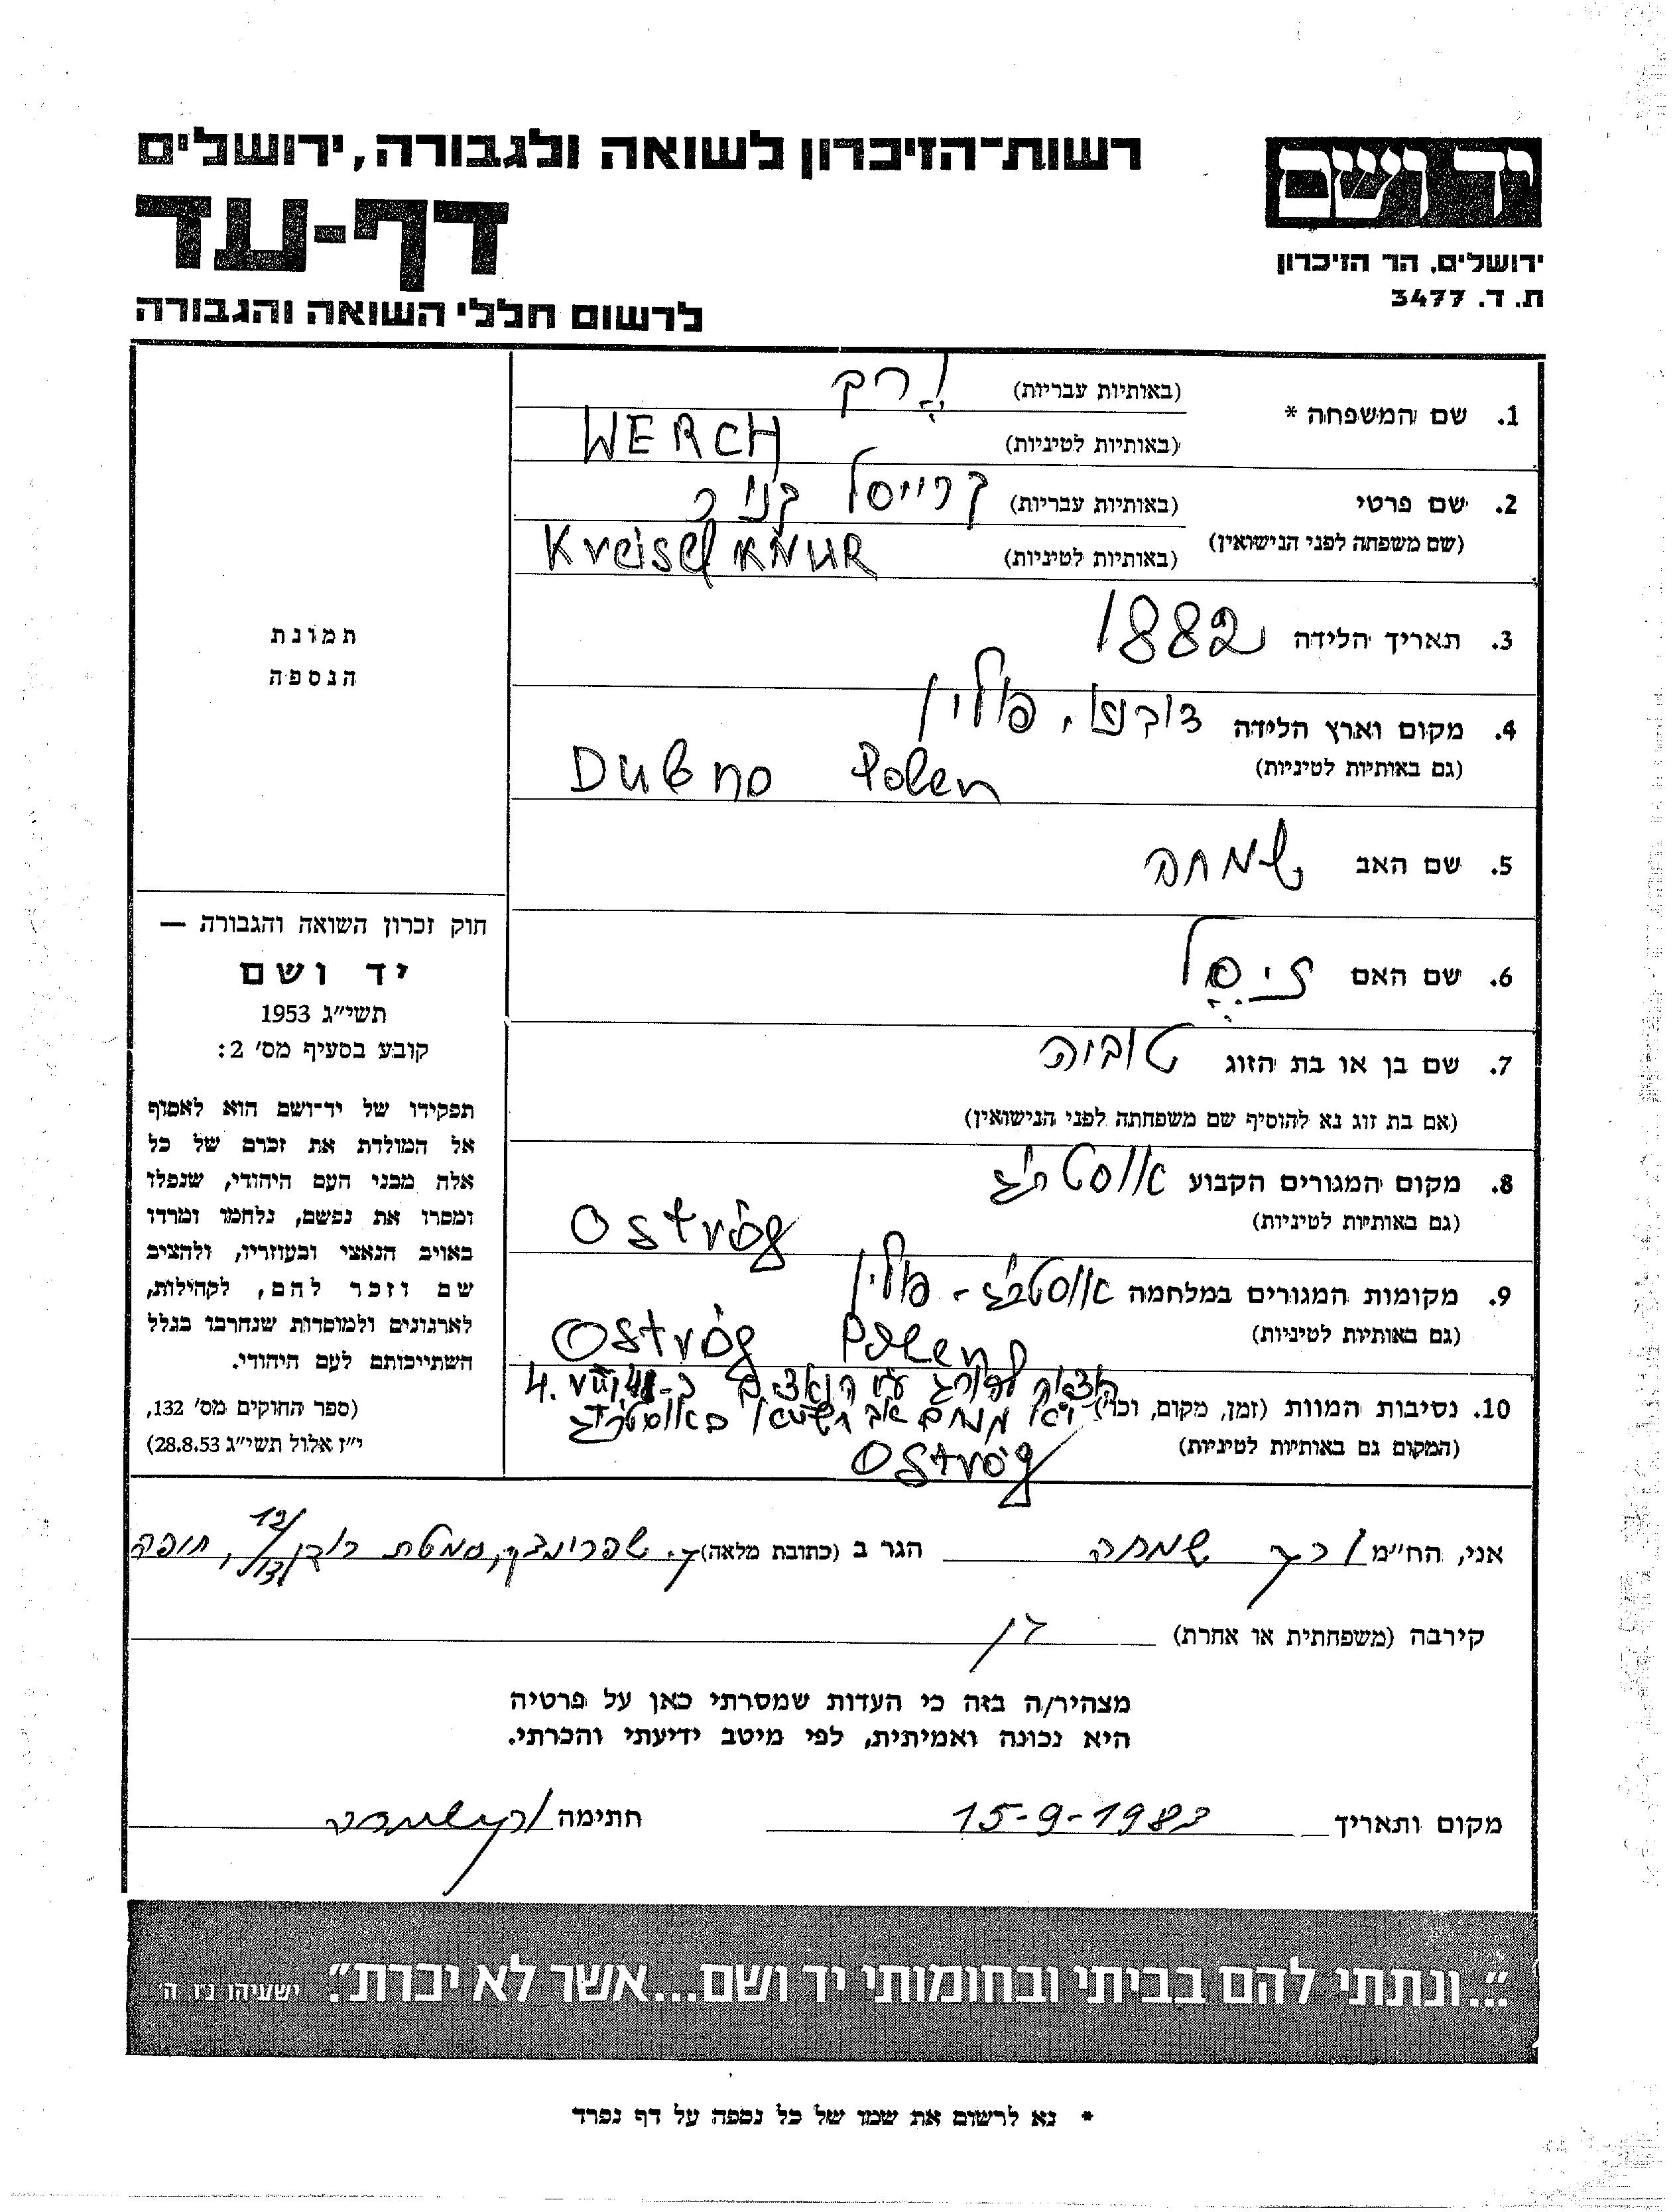 רשות־הזיכרון לשואה ולגבורה, ירושלים
יד ושם
דף-עד
ירושלים, הר הזיכרון
ת. ד. 3477
לרשום חללי השואה והגבורה
1. שם המשפחה * (באותיות עבריות) ורק
(באותיות לטיניות) WERCH
2. שם פרטי (באותיות עבריות) קרייסל קניר
(שם משפחה לפני הנישואין) (באותיות לטיניות) Kreisel KNUR
3. תאריך הלידה 1882
4. מקום וארץ הלידה דובנו, פולין
(גם באותיות לטיניות) Dubno Polen
5. שם האב שמחה
6. שם האם זיסל
7. שם בן או בת הזוג טוביה
(אם בת זוג נא להוסיף שם משפחתה לפני הנישואין)
8. מקום המגורים הקבוע אוסטרוג
(גם באותיות לטיניות) Ostróg
9. מקומות המגורים במלחמה אוסטרוג - פולין
(גם באותיות לטיניות) Ostróg Polen
10. נסיבות המוות (זמן, מקום, וכו') הנאצים ב-
(המקום גם באותיות לטיניות) Ostróg
תמונת
הנספה
חוק זכרון השואה והגבורה —
יד ושם
תשי״ג 1953
קובע בסעיף מס' 2:
תפקידו של יד־ושם הוא לאסוף
אל המולדת את זכרם של כל
אלה מבני העם היהודי, שנפלו
ומסרו את נפשם, נלחמו ומרדו
באויב הנאצי ובעוזריו, ולהציב
שם וזכר להם, לקהילות,
לארגונים ולמוסדות שנחרבו בגלל
השתייכותם לעם היהודי.
(ספר החוקים מס' 132,
י״ז אלול תשי״ג 28.8.53)
אני, הח״מ ורך שמחה הגר ב (כתובת מלאה) ק. שפרינצק, סמטת חיפה
קירבה (משפחתית או אחרת) בן
מצהיר/ה בזה כי העדות שמסרתי כאן על פרטיה
היא נכונה ואמיתית, לפי מיטב ידיעתי והכרתי.
מקום ותאריך 15-9-1983 חתימה
"...ונתתי להם בביתי ובחומותי יד ושם...אשר לא יכרת". ישעיהו נ״ו ה'
* נא לרשום את שמו של כל נספה על דף נפרד